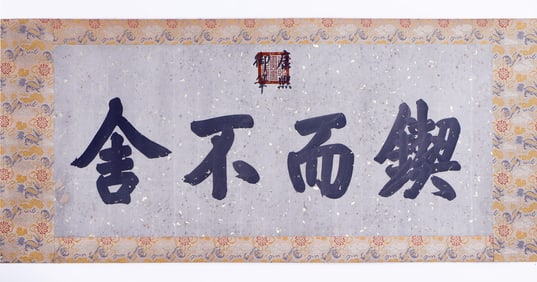 鍥而不舍
康熙御筆